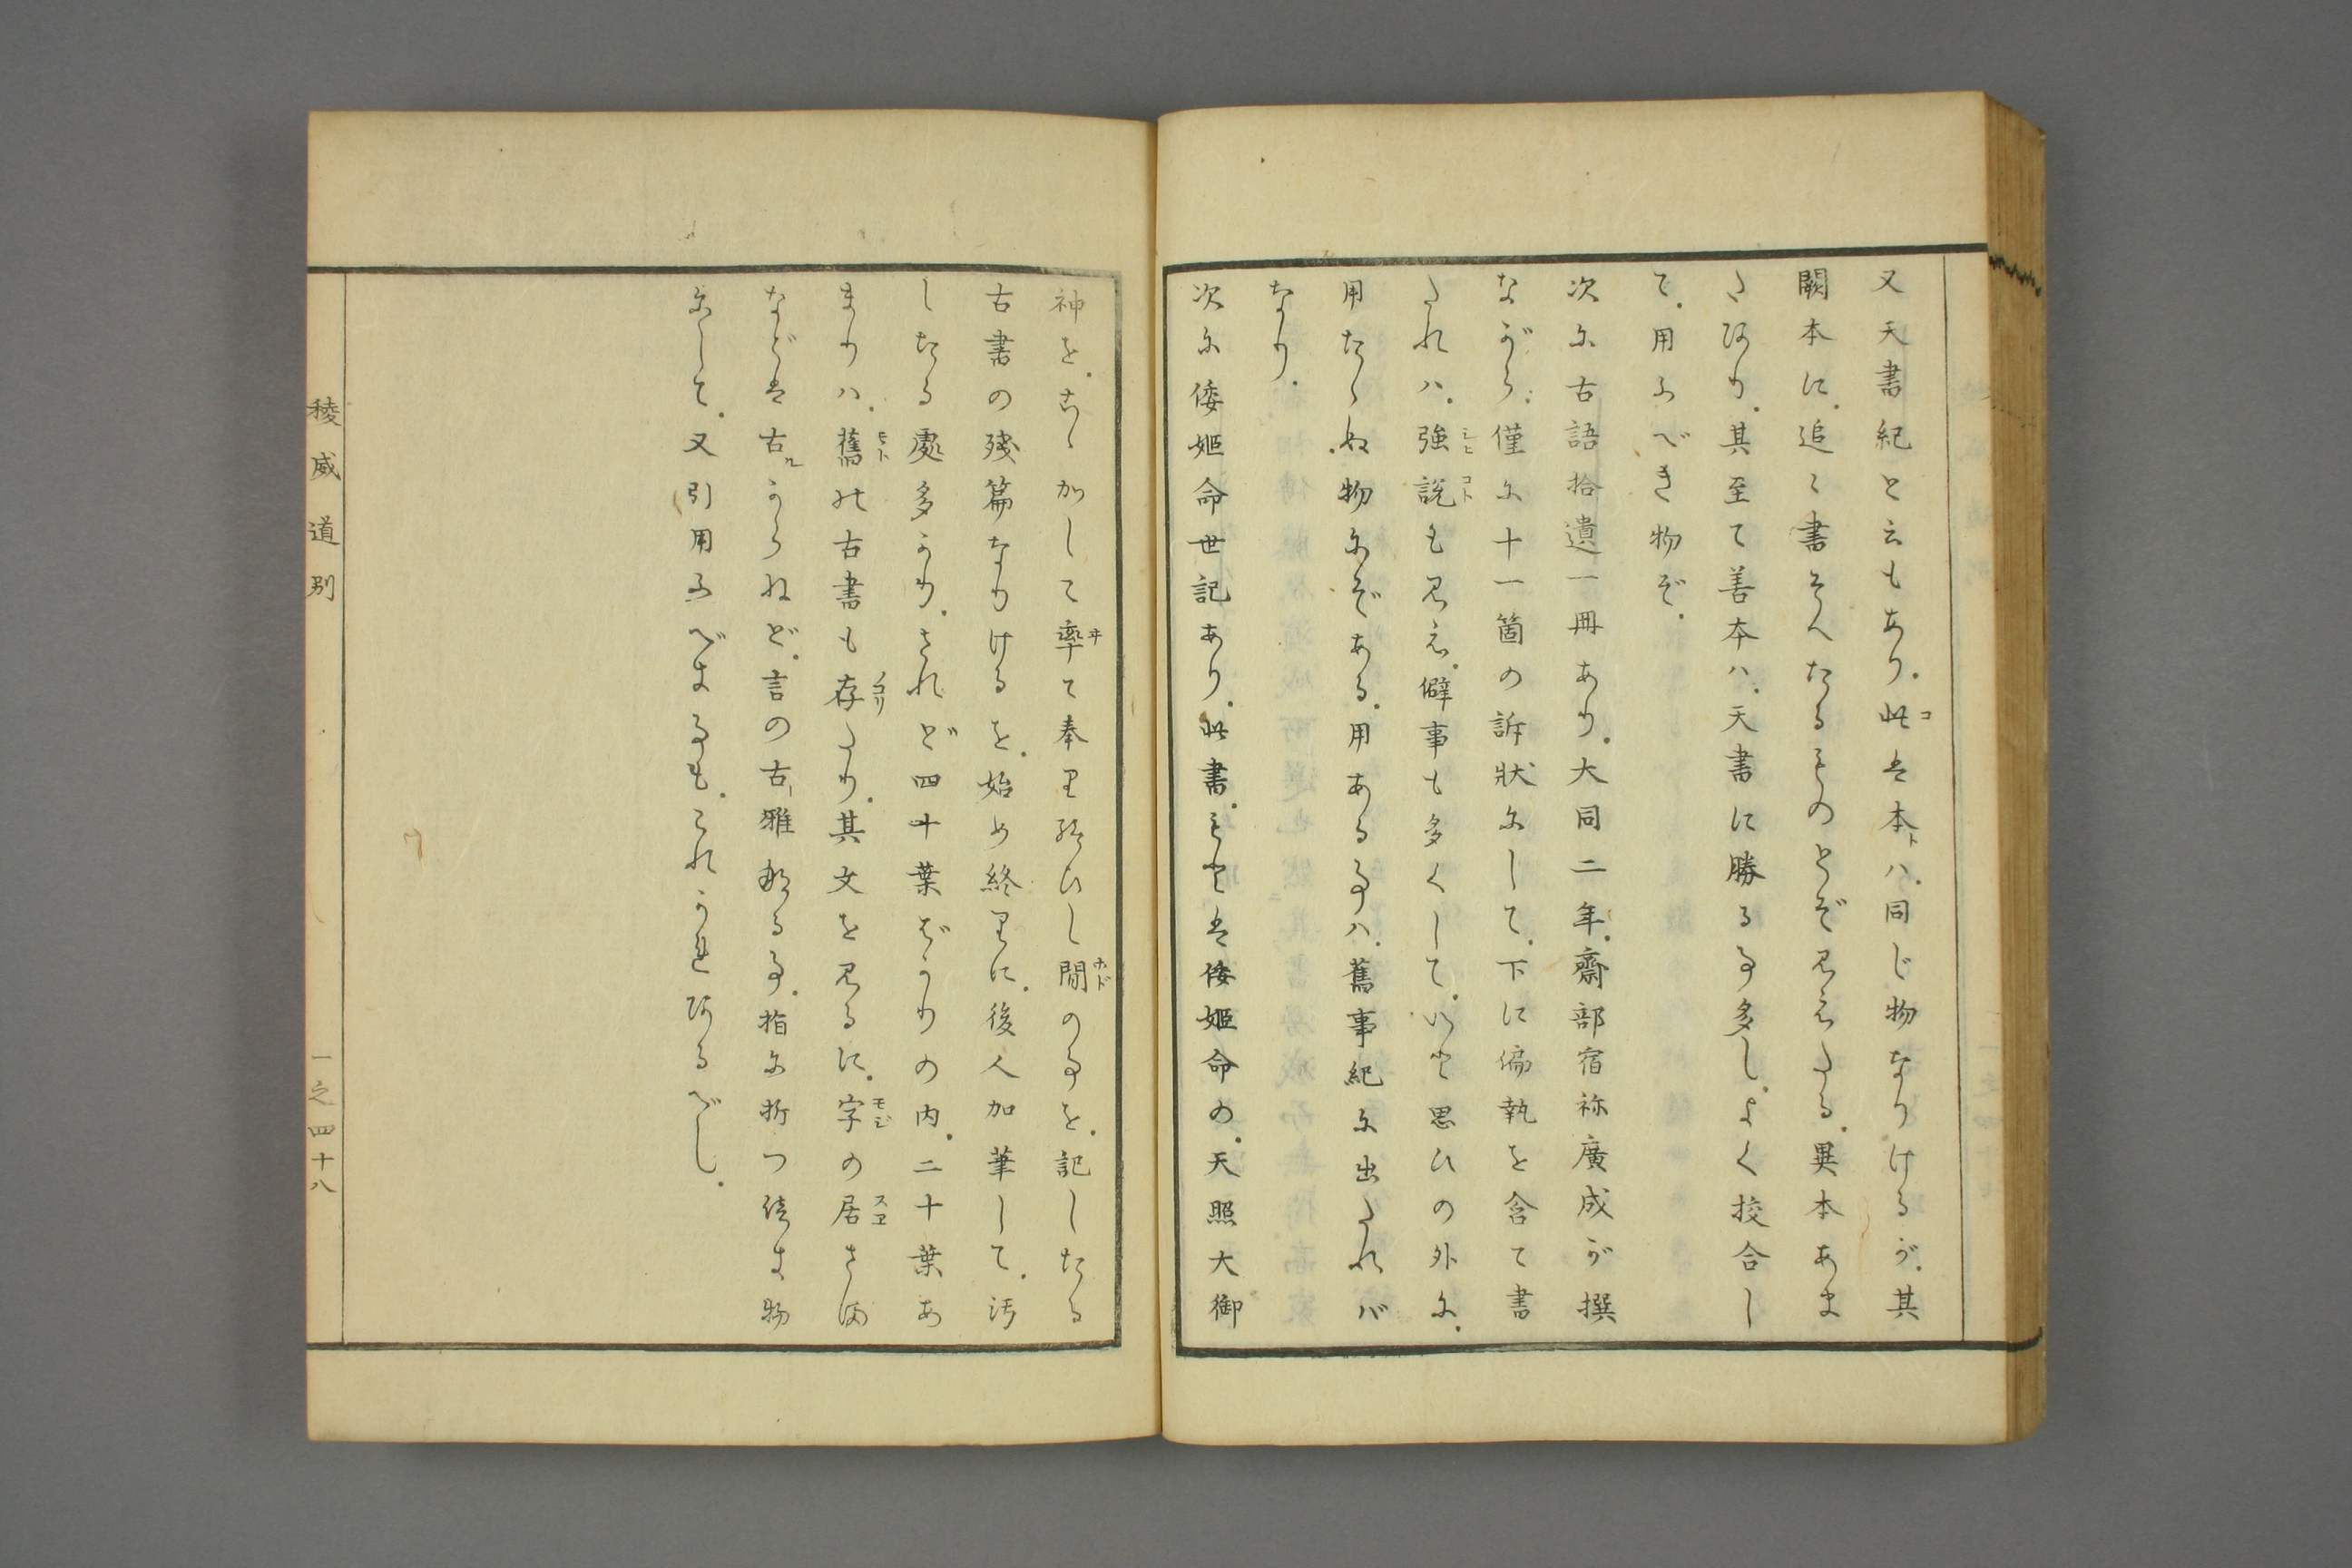 又天書紀と云もあり。此は本ハ。同じ物なりけるが。其
闕本に。追々書そへたるものとぞ見えたる。異本あま
たあり。其至て善本ハ。天書に勝る事多し。よく挍合し
て。用ふべき物ぞ。
次に古語拾遺一冊あり。大同二年。齋部宿祢廣成が撰
ながら。僅に十一箇の訴状にして。下に偏執を含て書
たれハ。強説も見え。僻事も多くして。いと思ひの外に。
用たゝぬ物にぞある。用ある事ハ。舊事紀に出たれバ
なり。
次に倭姫命世記あり。此書。もとは倭姫命の。天照大御
神を。こゝかして率て奉り給ひし間の事を。記したる
古書の殘篇なりけるを。始め終りに。後人加筆して。汚
したる處多かり。されど四十葉ばかりの内。二十葉あ
まりハ。舊の古書も存たり。其文を見るに。字の居さま
などは古からねど。言の古雅なる事。指に折つ徒ま物
にして。又引用ふべき事も。これかれあるべし。
稜威道別
一之四十八